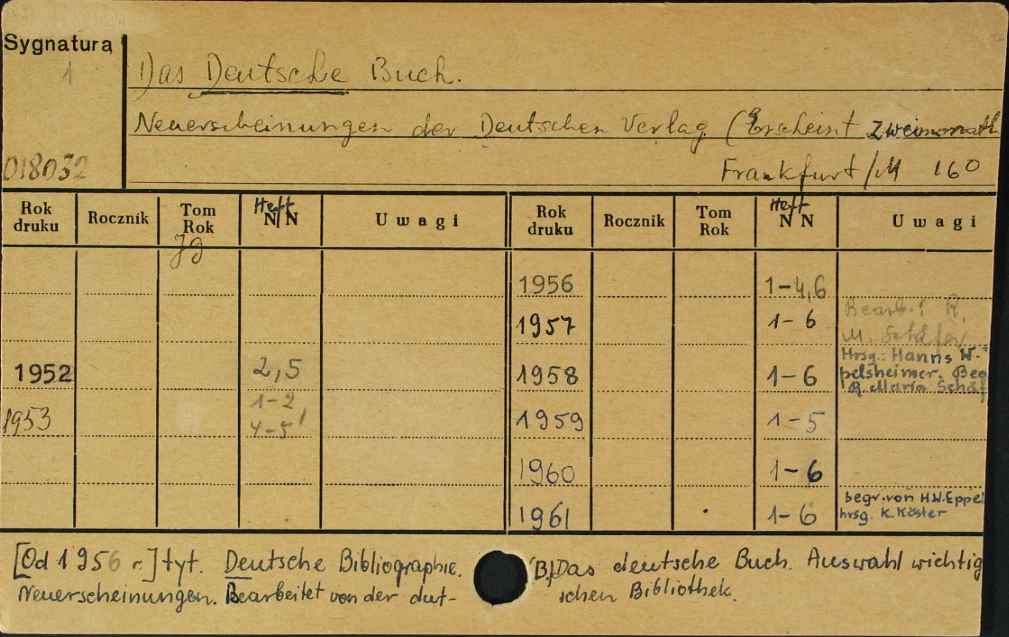 Sygnatura
1
Das Deutsche Buch.
Neuerscheinungen der Deutschen Verlag (Erscheint Zweimonatl
018032
Frankfurt/M 160
Rok druku Rocznik Tom Rok Heft NN Uwagi Rok druku Rocznik Tom Rok Heft NN Uwagi
Jg
1956 1-4,6
1957 1-6 Bearb.: R.
M. Schäfer
1952 2,5 1958 1-6 Hrsg.: Hanns W.
pelsheimer. Bea
R. Maria Schäf
1953 1-2,
4-5 1959 1-5
1960 1-6
1961 1-6 begr. von H.W. Eppel
hrsg. K. Köster
[Od 1956 r.] tyt. Deutsche Bibliographie. B) Das deutsche Buch. Auswahl wichtig
Neuerscheinungen. Bearbeitet von der deut- schen Bibliothek.